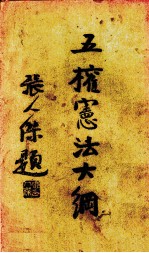 五權憲法大綱
張人傑題